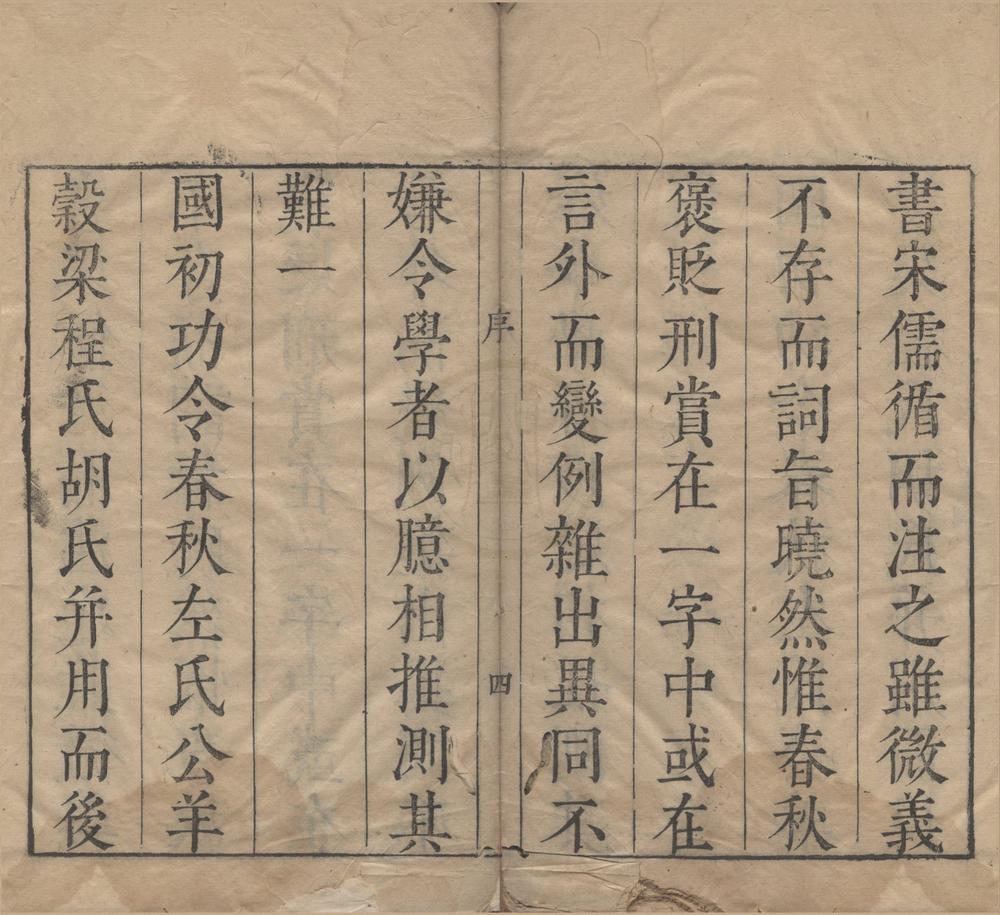 書宋儒循而注之雖微義
不存而詞旨曉然惟春秋
褒貶刑賞在一字中或在
言外而變例雜出異同不
序
四
嫌令學者以臆相推測其
難一
國初功令春秋左氏公羊
穀梁程氏胡氏并用而後